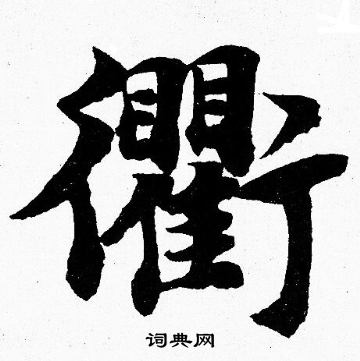 衢
词典网